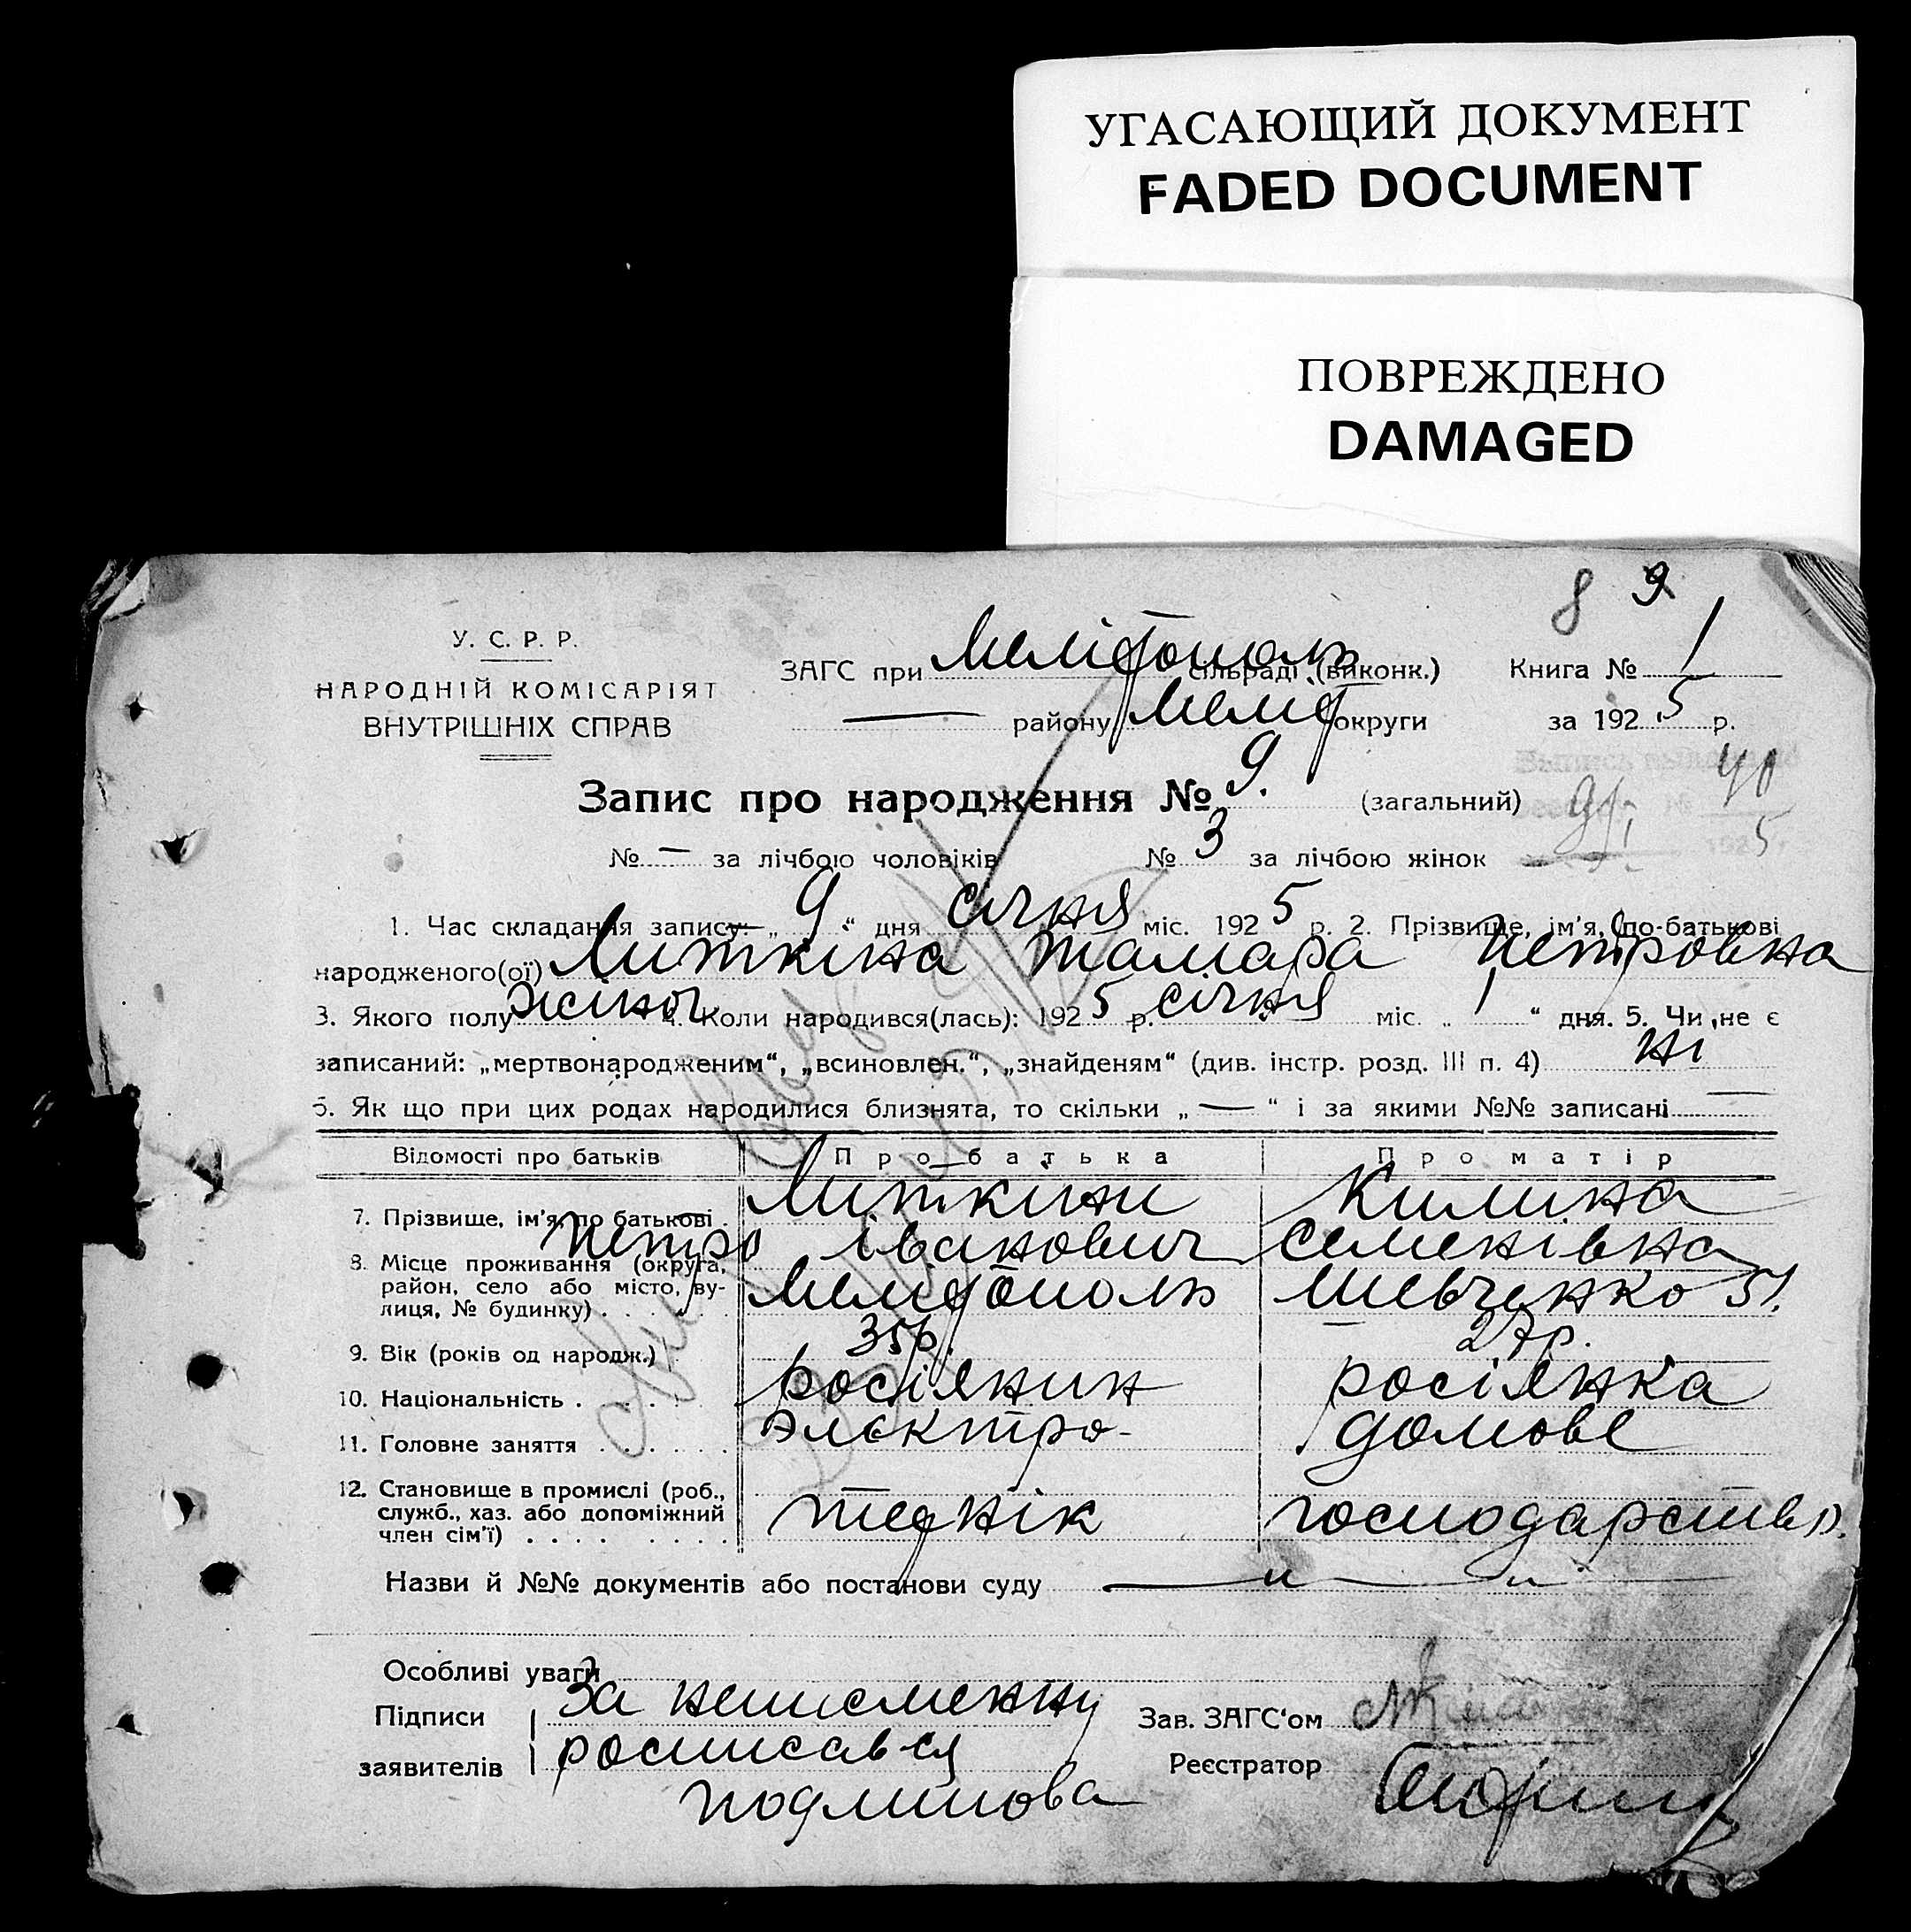 УГАСАЮЩИЙ ДОКУМЕНТ
FADED DOCUMENT
ПОВРЕЖДЕНО
DAMAGED
8 9
У. С. Р. Р.
НАРОДНІЙ КОМІСАРІЯТ
ВНУТРІШНІХ СПРАВ
ЗАГС при Мелітополь сільраді (виконк.) Книга № 1
— району Меліт округи за 1925 р.
Запис про народження № 9. (загальний)
№ — за лічбою чоловіків № 3 за лічбою жінок
1. Час складання запису: „ 9 “ дня січня міс. 1925 р. 2. Прізвище, ім'я, по-батькові
народженого(ої) Литкина Тамара Петровна
3. Якого полу жіноч 4. Коли народився(лась): 1925 р. січня міс. „ 1 “ дня. 5. Чи не є
записаний: „мертвонародженим“, „всиновлен.“, „знайденям“ (див. інстр. розд. III п. 4) ні
6. Як що при цих родах народилися близнята, то скільки „ — “ і за якими №№ записані —
Відомості про батьків Про батька Про матір
7. Прізвище, ім'я, по батькові . Литкин Килина
Петро Іванович Семенівна
8. Місце проживання (округа,
район, село або місто, ву-
лиця, № будинку) . . . . Мелітополь Шевченко 51.
9. Вік (років од народж.) 35 р. 27 р.
10. Національність . . . . росіянин росіянка
11. Головне заняття . . . . . . электро- домове
12. Становище в промислі (роб.,
служб., хаз. або допоміжний
член сім'ї) . . . . . . . . технік господарство.
Назви й №№ документів або постанови суду — „ — „
Особливі уваги
Підписи За неписменну Зав. ЗАГС'ом
заявителів росписався Реєстратор